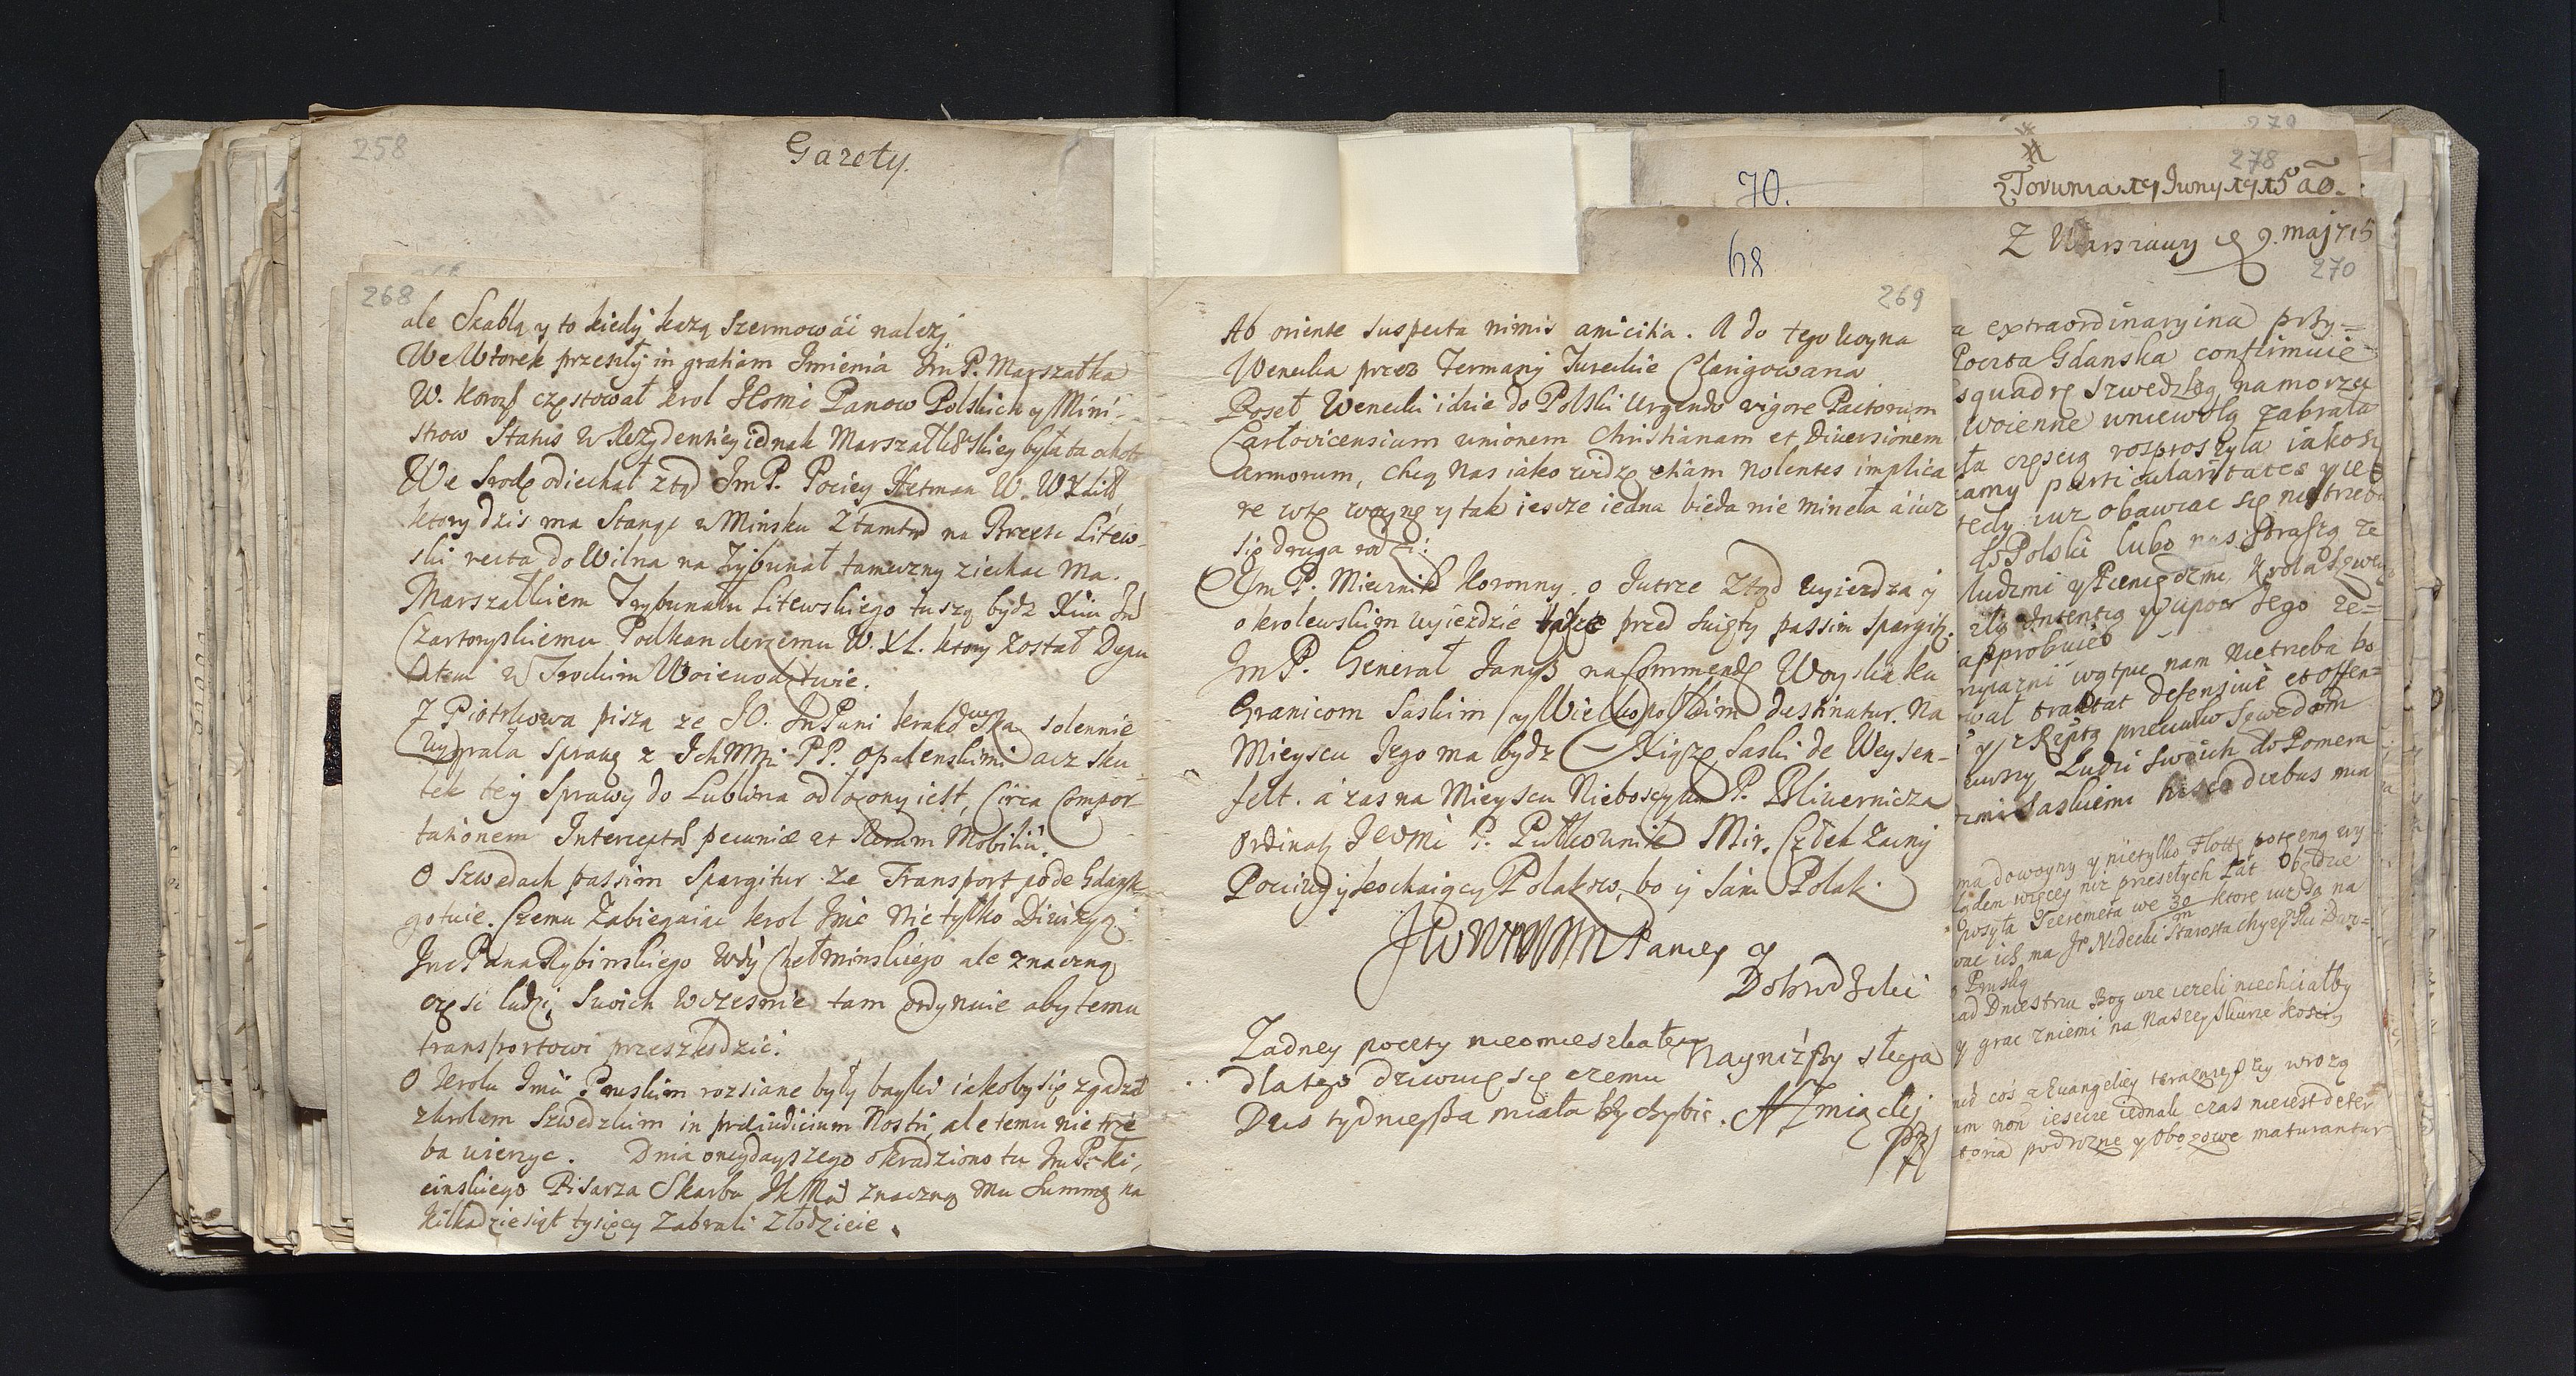 258
Gazety.
268
ale Skablą y to kiedÿ każą szermować należÿ
We Wtorek przeszłÿ in gratiam Imienia Jm P. Marszałka
W. Koron częstował krol Ichmć Panow Polskich y Mini-
strow Status w Rezydentiey iednak Marszałkowskiey była ta
We Srodę odiechał ztąd Jm P. Pociey Hetman W. WXLitt
ktory dzis ma Stanąc w Minsku Ztamtąd na Brzesc Litew-
ski recta do Wilna na Trÿbunał tameczny ziechac ma.
Marszałkiem Trybunału Litewskiego tuszą bydz
Czartoryskiemu Podkanclerzemu W.XL. ktory został Depu
tatem w Trockim Woiewodztwie.
Z Piotrkowa piszą ze JO. Jm Pani krakowska solennie
wygrała Sprawę z Ich PP. Opalenskimi acz sku-
tek teÿ Sprawy do Lublina odłożony iest, Circa Compor-
tationem Interceptae pecuniae et Rerum Mobiliu.
O Szwedach passim Spargitur ze Transport pode Gdansk
gotuie. Czemu Zabiegaiac krol Jmc nie tylko Diwizyą
Jmc Pana Rybinskiego Wdÿ Chełminskiego ale znaczną
częsc ludzi Swoich wczesnie tam ordynuie aby temu
transportowi przeszkodzic.
O krolu Pruskim rozsiane byłÿ bayki iakoby się zgadzał
z krolem Szwedzkim in praeiudicium Nostri, ale temu nie trze
ba wierzyc. Dnia onegdayszego okradziono tu Jm P. ki-
cinskiego Pisarza Skarbu znaczną mu Summę na
kilkadziesiąt tysięcy Zabrali Złodzieie.
269
Ab oriente suspecta nimis amicitia. A do tego woyna
Wenecka przez Germanÿ Tureckie Clarigowana
Poseł Wenecki idzie do Polski Urgendo vigore Pactorum
Carlovicensium unionem Christianam et Diversionem
armorum, chcą nas iako widzę etiam nolentes implica
re w tę woynę y tak iescze iedna bieda nie mineła á iuz
się druga rodzi.
Jm P. Miecznik Koronny o Jutrze Ztąd wyiezdza ÿ
o krolewskim wyiezdzie także przed Swięty passim Spargitÿ.
Jm P. Generał Janus na Commendę Woyska ku
Granicom Saskim y Wielkopolskim destinatur. Na
Mieyscu Jego ma bydz Xiąze Saski de Weysen-
felt. á zas na Mieyscu Nieboszczyka P. Bliwernicza
Ordinatÿ Jeomć P. Pułkownik Mir. Człek Zacny
Poczciwÿ kochaiący Polakow, bo ÿ sam Polak.
Paniey y
Dobrodzieki
Zadney poczty nieomieszkałem
dlatego dziwuię się czemu
Dwo tydniessza miała bÿ chybic.
Nayniższy sługa
AZmiącky
70.
#
279
278
z Torunia 19 Juny 1715 ao.
68
Z Warszawy 9. maj 715
270
a extraordinaryina przy-
Poczta Gdanska confirmuie
squadrę Szwedzką na morzu
woienne w niewolą zabrała
ła częscią rosproszyła iakosz
amy particularitates y iesz
tedy iuz obawiac się nietrzeba
do Polski lubo nas straszą ze
ludzmi y Pieniędzmi, Krola Szwe
złą intentią y upor Jego ze-
approbuie
nyiazni wątpic nam nie trzeba bo
wał traktat defensive et offen-
y z Rzptą przeciwko Szwedom
Ludzi Swoich do Pomera
zmi Saskiemi hisce diebus ma
ma do woyny y nie tylko Flottę potęzną wy
lądem więcey niz przeszłych Lat Obiedzie
posyła Teeremeta we 30/m ktore iuz są na
wac ich ma Jp Nidecki Starosta
Pruską
ad Dniestru Bog wie iezeli niechciałby
y grac z niemi na Naszey skurze kosci
nas cos z Ewangeliey wrozą
um non iescze iednak czas nieiest deter
toria podrozne y Obozowe maturantur